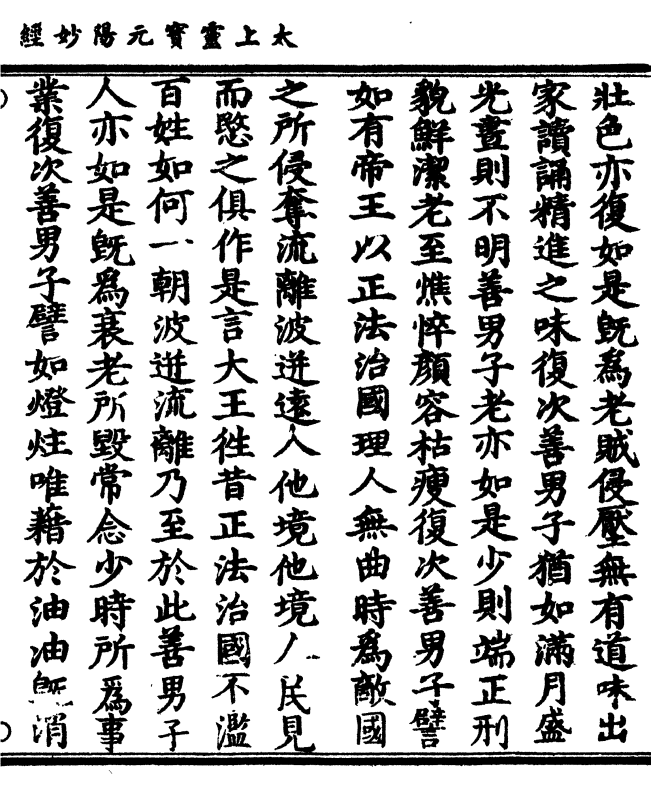 太上靈寳元陽妙經
壯色亦復如是旣爲老賊侵壓無有道味出
家讀誦精進之味復次善男子猶如滿月盛
光晝則不明善男子老亦如是少則端正刑
貌鮮潔老至憔悴顔容枯瘦復次善男子譬
如有帝王以正法治國理人無曲時爲敵國
之所侵奪流離波迸遠人他境他境人民見
而愍之俱作是言大王徃昔正法治國不濫
百姓如何一朝波迸流離乃至於此善男子
人亦如是旣爲衰老所毀常念少時所爲事
業復次善男子譬如燈炷唯藉於油油旣消